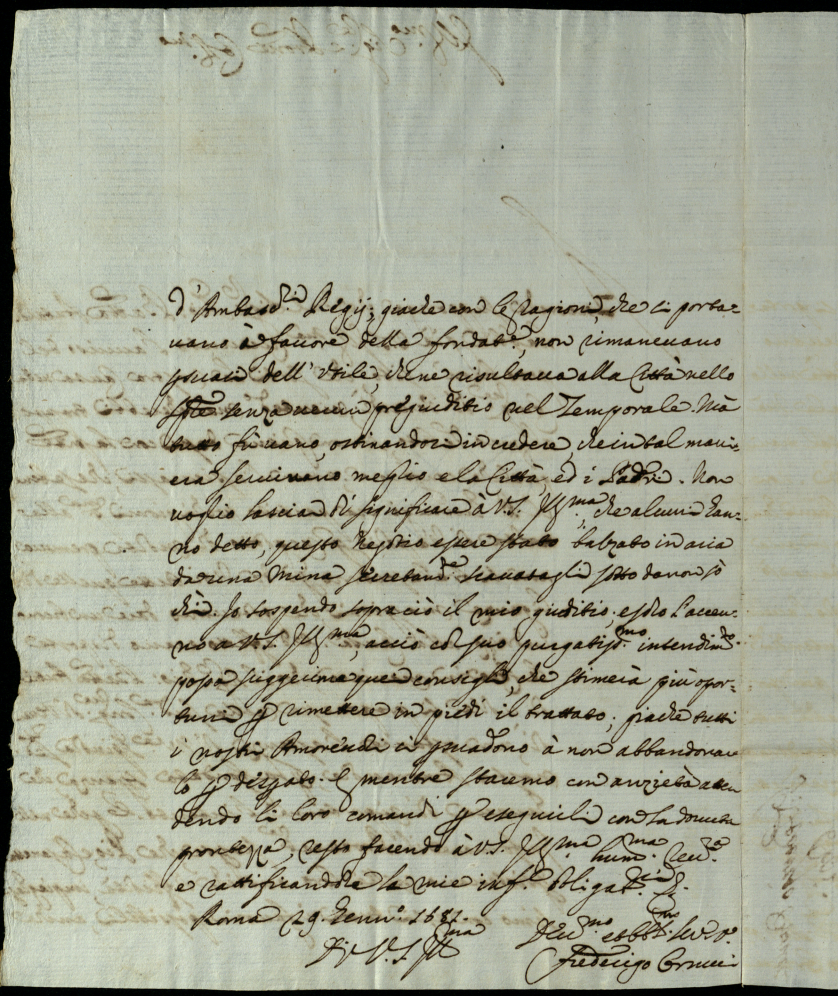 d'Ambasc.ri Regij; giache con le ragioni, che si porta=
uano à fauore della fondat.e, non rimaneuano
psuasi dell'Vtile, che ne risultaua alla Città nello
sp̃le senza uerun pregiuditio nel Temporale. Mà
tutto fù uano, ostinandosi in credere, che in tal mani=
era seruiuano meglio e la Città, ed i Padri. Non
uoglio lasciar di significare à V.S. Ill.ma, che alcuni han=
no detto, questo negotio essere stato balzato in aria
da una Mina secretam.te scauatagli sotto da non sò
chi. Io sospendo sopra ciò il mio giuditio, e solo l'accen=
no a V.S. Ill.ma, acciò col suo purgatiss.mo intendim.to
possa suggerirne quei consigli, che stimerà più opor=
tuni p rimettere in piedi il trattato; giache tutti
i nostri Amoreuoli ci psuadono à non abbandonar
lo p disperato. E mentre staremo con anzietà atten
dendo li loro comandi p eseguirli con la douuta
prontezza, resto facendo à V.S. Ill.ma hum.ma reu.a
e rattificandole le mie inf.te obligat.ni &.
Roma 29. Genn.o 1681.
Di V.S. Ill.ma
Deu.mo et obb.mo Ser.re
Federigo